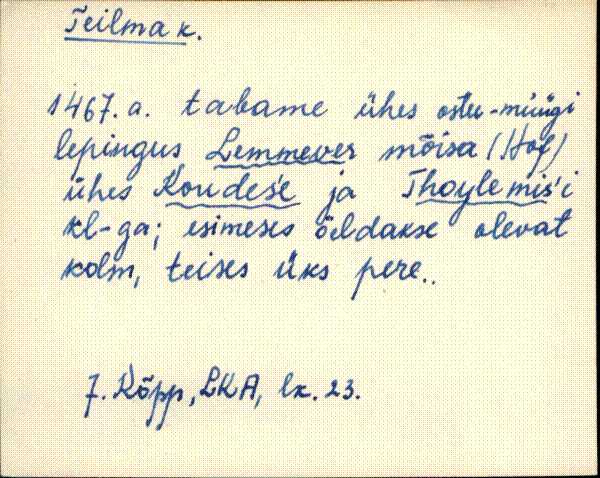 Teilma k.
1467. a. tabame ühes ostu-müügi
lepingus Lemmever mõisa (Hof)
ühes Koudes'e ja Thoylemis'i
kl-ga; esimeses öeldakse olevat
kolm, teises üks pere..
J. Kõpp, LKA, lk. 23.